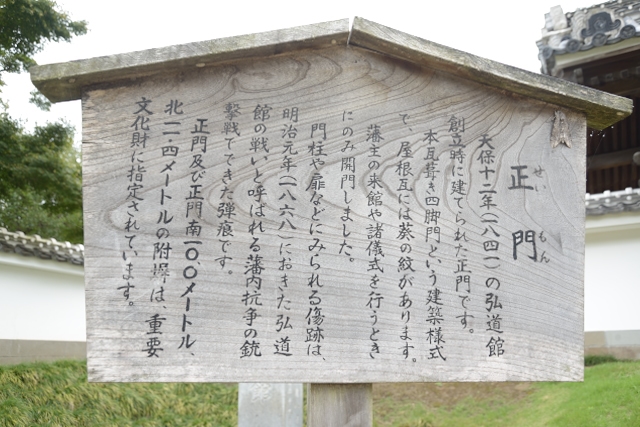 正門
せいもん
天保十二年(一八四一)の弘道館
創立時に建てられた正門です。
本瓦葺き四脚門という建築様式
で、屋根瓦には葵の紋があります。
藩主の来館や諸儀式を行うとき
にのみ開門しました。
門柱や扉などにみられる傷跡は、
明治元年(一八六八)におきた弘道
館の戦いと呼ばれる藩内抗争の銃
撃戦でできた弾痕です。
正門及び正門南一〇〇メートル、
北二・四メートルの附塀は、重要
文化財に指定されています。